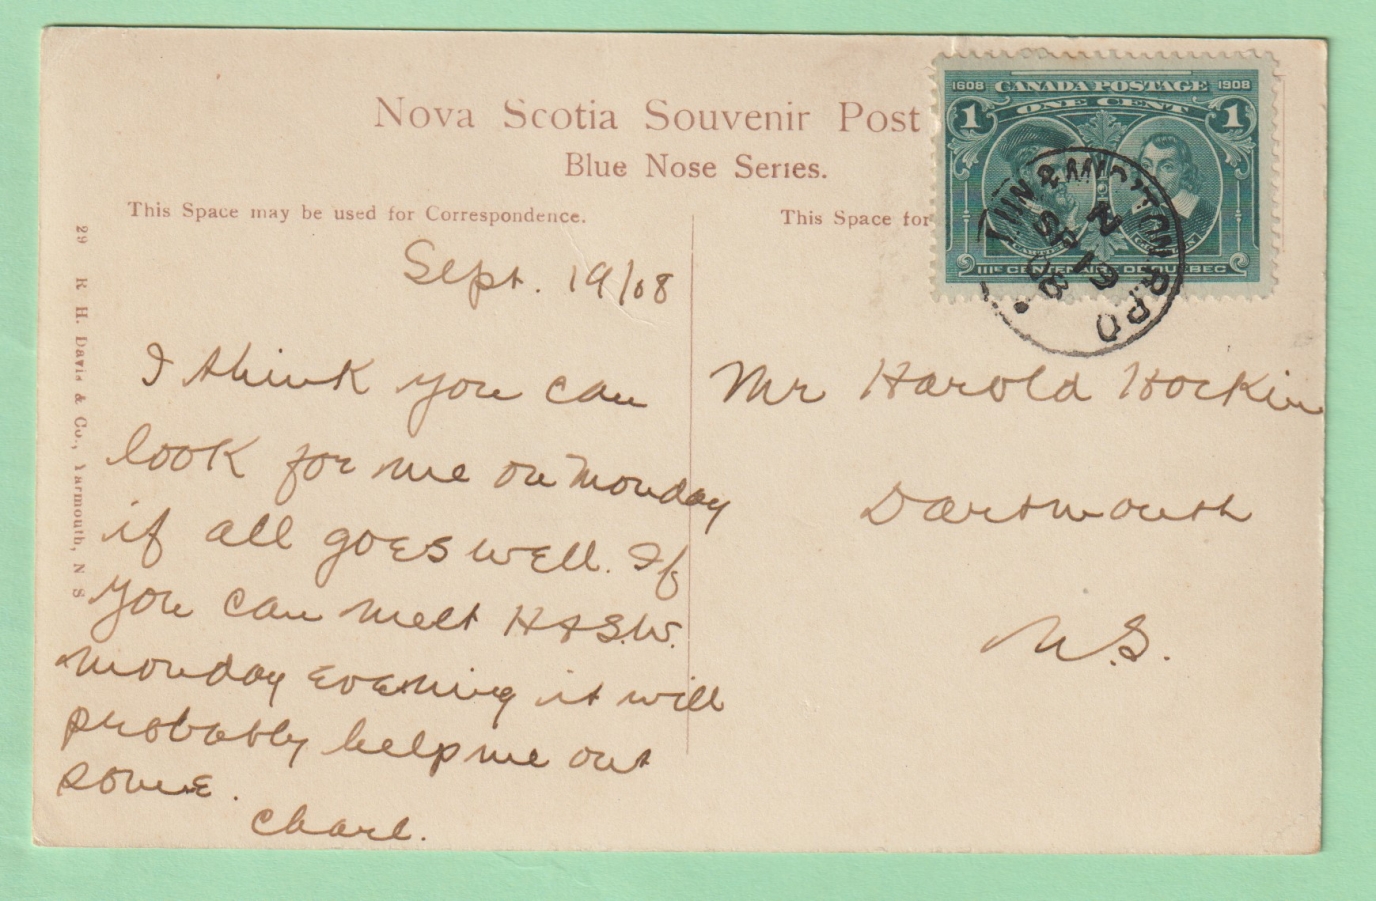 Nova Scotia Souvenir Post
Blue Nose Series.
This Space may be used for Correspondence.
This Space for
29 R. H. Davis & Co., Yarmouth, N S
1608 CANADA POSTAGE 1908
ONE CENT
1 1
IIIe CENTENAIRE DE QUEBEC
R.P.O
2
SP 19
08
Sept. 19/08
I think you can
look for me on Monday
if all goes well. If
you can meet H & S.W.
Monday evening it will
probably help me out
some.
Charl.
Mr Harold Hockin
Dartmouth
N.S.